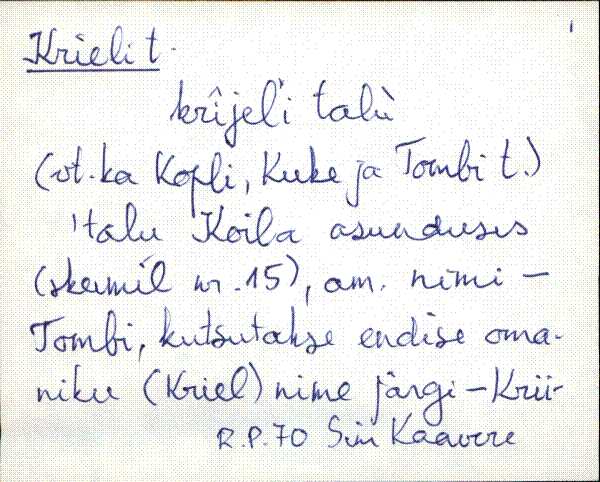 Krieli t.
krîjel'i talù
(vt. ka Kopli, Kuke ja Tombi t.)
'talu Koila asunduses
(skeemil nr. 15), am. nimi -
Tombi, kutsutakse endise oma-
niku (Kriel) nime järgi - Krii-
R.P.70 Sim Kaavere